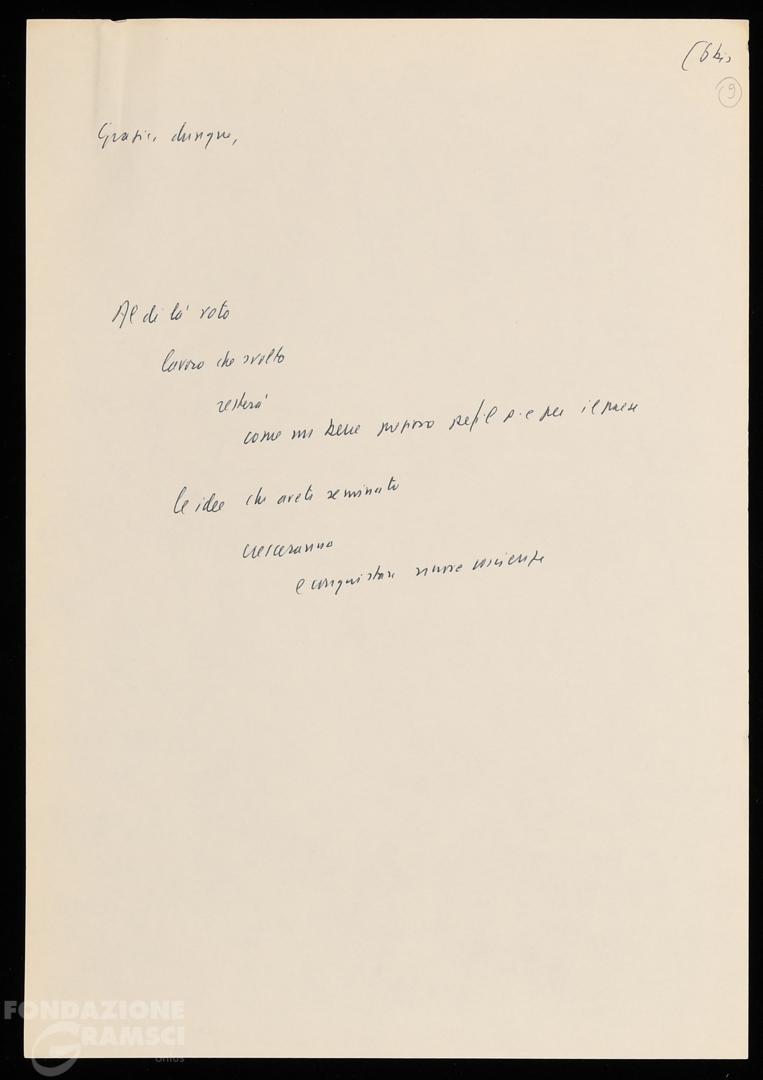 (6 bis
9
Grazie, dunque,
Al di là voto
lavoro che svolto
resterà
come un bene prezioso per il p. e per il paese
le idee che avete seminato
cresceranno
e conquistare nuove coscienze
FONDAZIONE
GRAMSCI
onlus